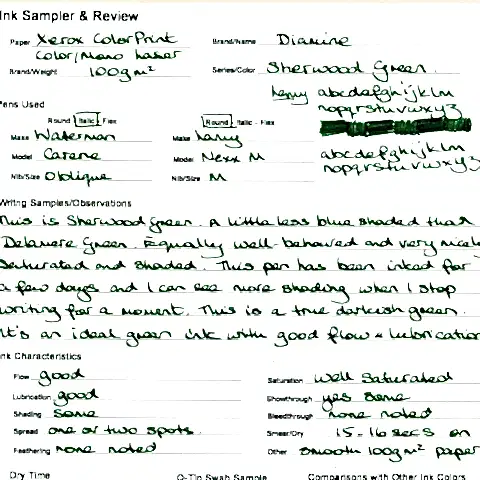 Ink Sampler & Review
Paper Xerox ColorPrint
Color/Mono Laser
Brand/Weight 100g m²
Brand/Name Diamine
Series/Color Sherwood Green
Lamy abcdefghijklm
nopqrstuvwxyz
Pens Used
Round Italic - Flex
Make Waterman
Model Carene
Nib/Size Oblique
Round - Italic - Flex
Make Lamy
Model Nexx M
Nib/Size M
abcdefghijklm
nopqrstuvwxyz
Writing Samples/Observations
This is Sherwood Green. A little less blue shaded that
Delamere Green. Equally well-behaved and very nicely
saturated and shaded. This pen has been inked for
a few days and I can see more shading when I stop
writing for a moment. This is a true darkish green.
It's an ideal green ink with good flow + lubrication
Ink Characteristics
Flow good
Lubrication good
Shading some
Spread one or two spots.
Feathering none noted
Saturation well saturated
Showthrough yes some
Bleedthrough none noted
Smear/Dry 15-16 secs on
Other smooth 100g m² paper
Dry Time
Q-Tip Swab Sample
Comparisons with Other Ink Colors